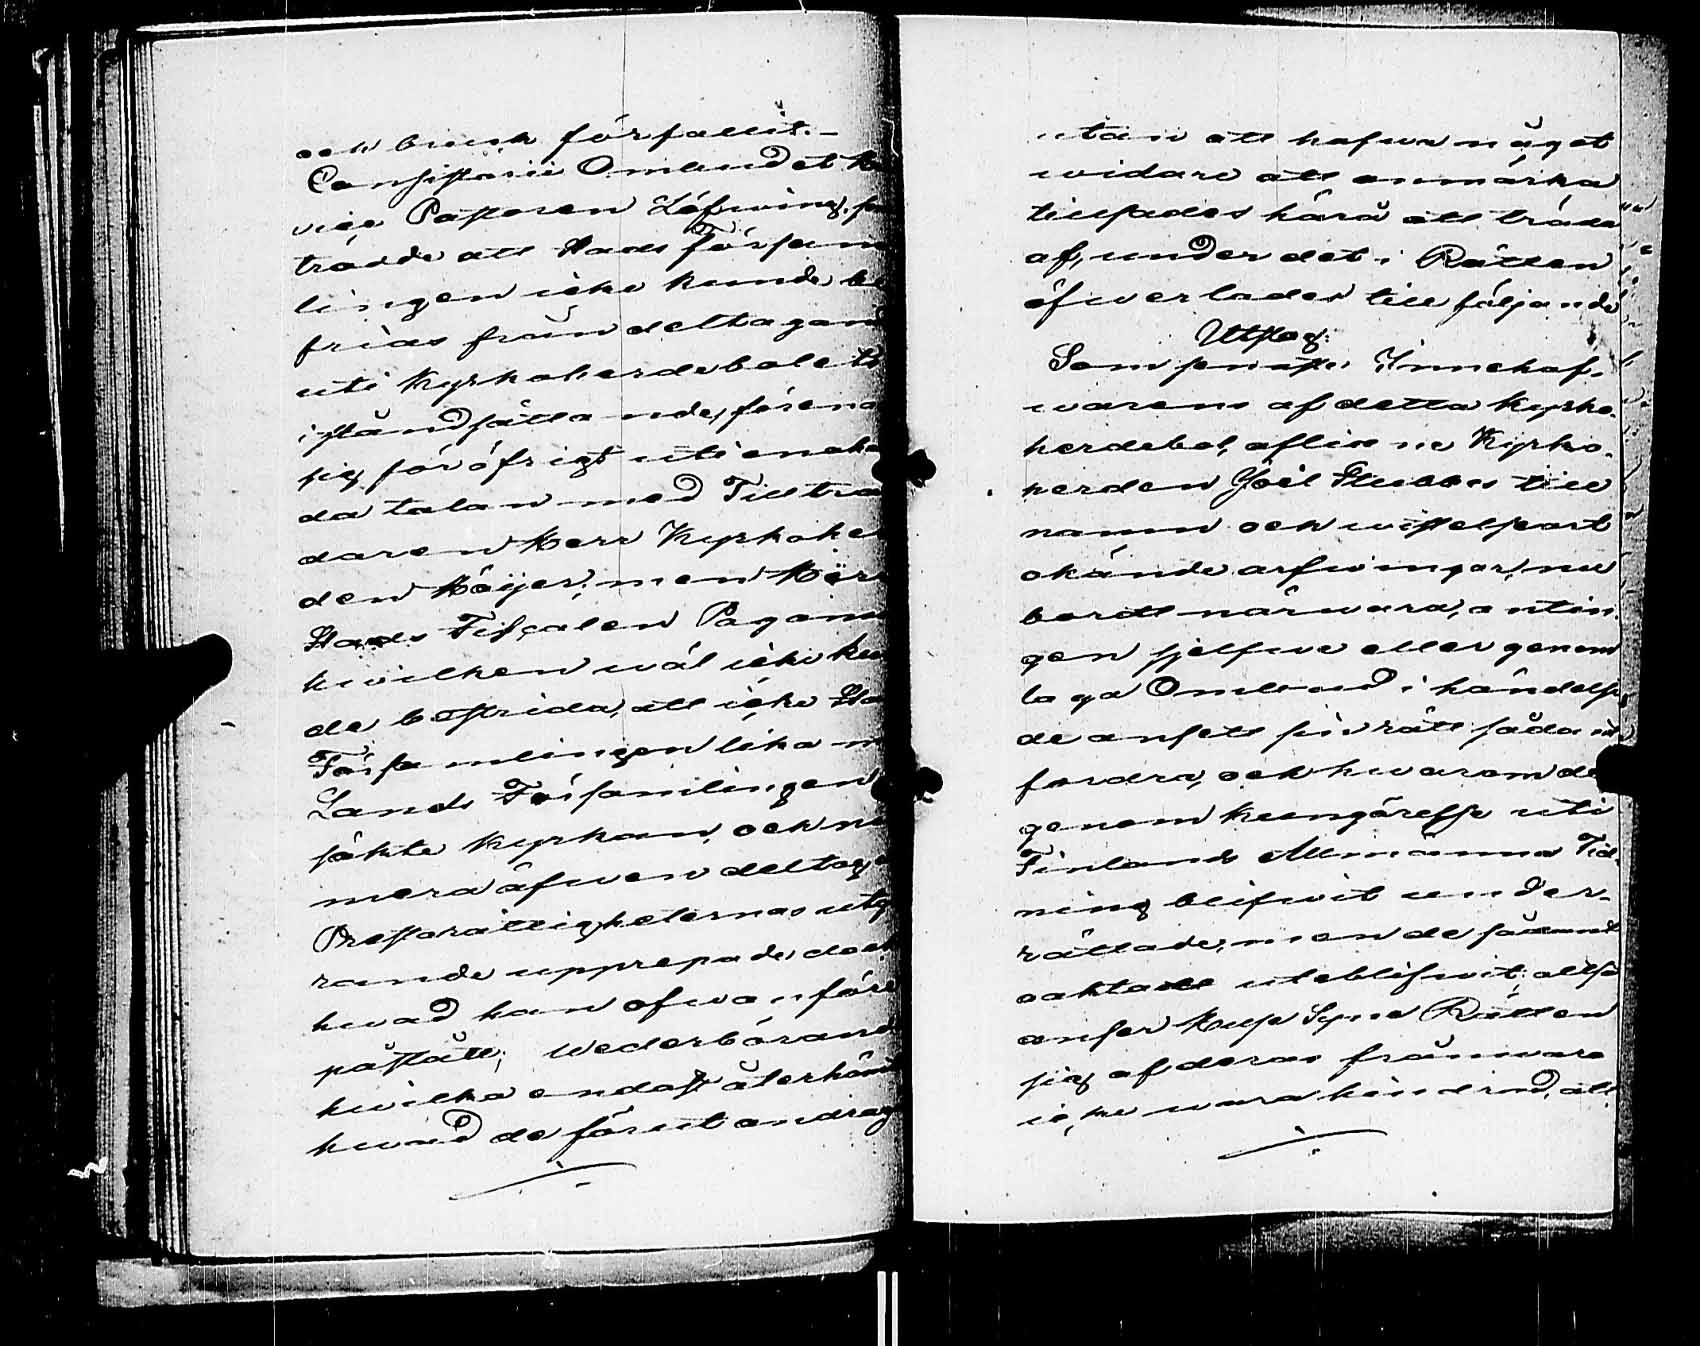 och bruk förfallit. –
Consistorii Ombudet
vice Pastoren Löfwing
trädde att Stads Församm
lingen icke kunde be
frias från deltagan
uti Kyrkoherdebolets
iståndsättande, förena
sig för öfrigt uti enaha
da talan med Tillträ
daren Herr Kyrkoher
den Höijer, men Herr
Stads Fiscalen Pagani
hwilken wäl icke kun
de bestrida, att icke Sta
Församlingen lika m
Lands Församlingen
sökte Kyrkan, och nu
mera äfwen deltog
Prestorättigheternas utgö
rande upprepade, doc
hwad han ofwanföre
påstått; Wederböran
hwilka endast återhäm
hwad de förut andrag
utan att hafwa något
widare att anmärka
tillsades härå att träda
af, under det i Rätten
öfwerlades till följande
Utslag:
Som senaste Innehaf-
warens af detta Kyrko-
herdebol, aflidne Kyrko-
herden Joël Stubbes till
namn och wistelseort
okände arfwingar, nu
bordt närwara, antin
gen sjelfwe eller genom
laga Ombud i händelse
de ansett sin rätt sådant
fordra, och hwarom de
genom kungörelse uti
Finlands Allmänna Tid
ning blifwit under-
rättade, men de sådant
oaktadt uteblifwit; altså
anser Huse Syne Rätten
sig af deras frånwaro
icke wara hindrad, att